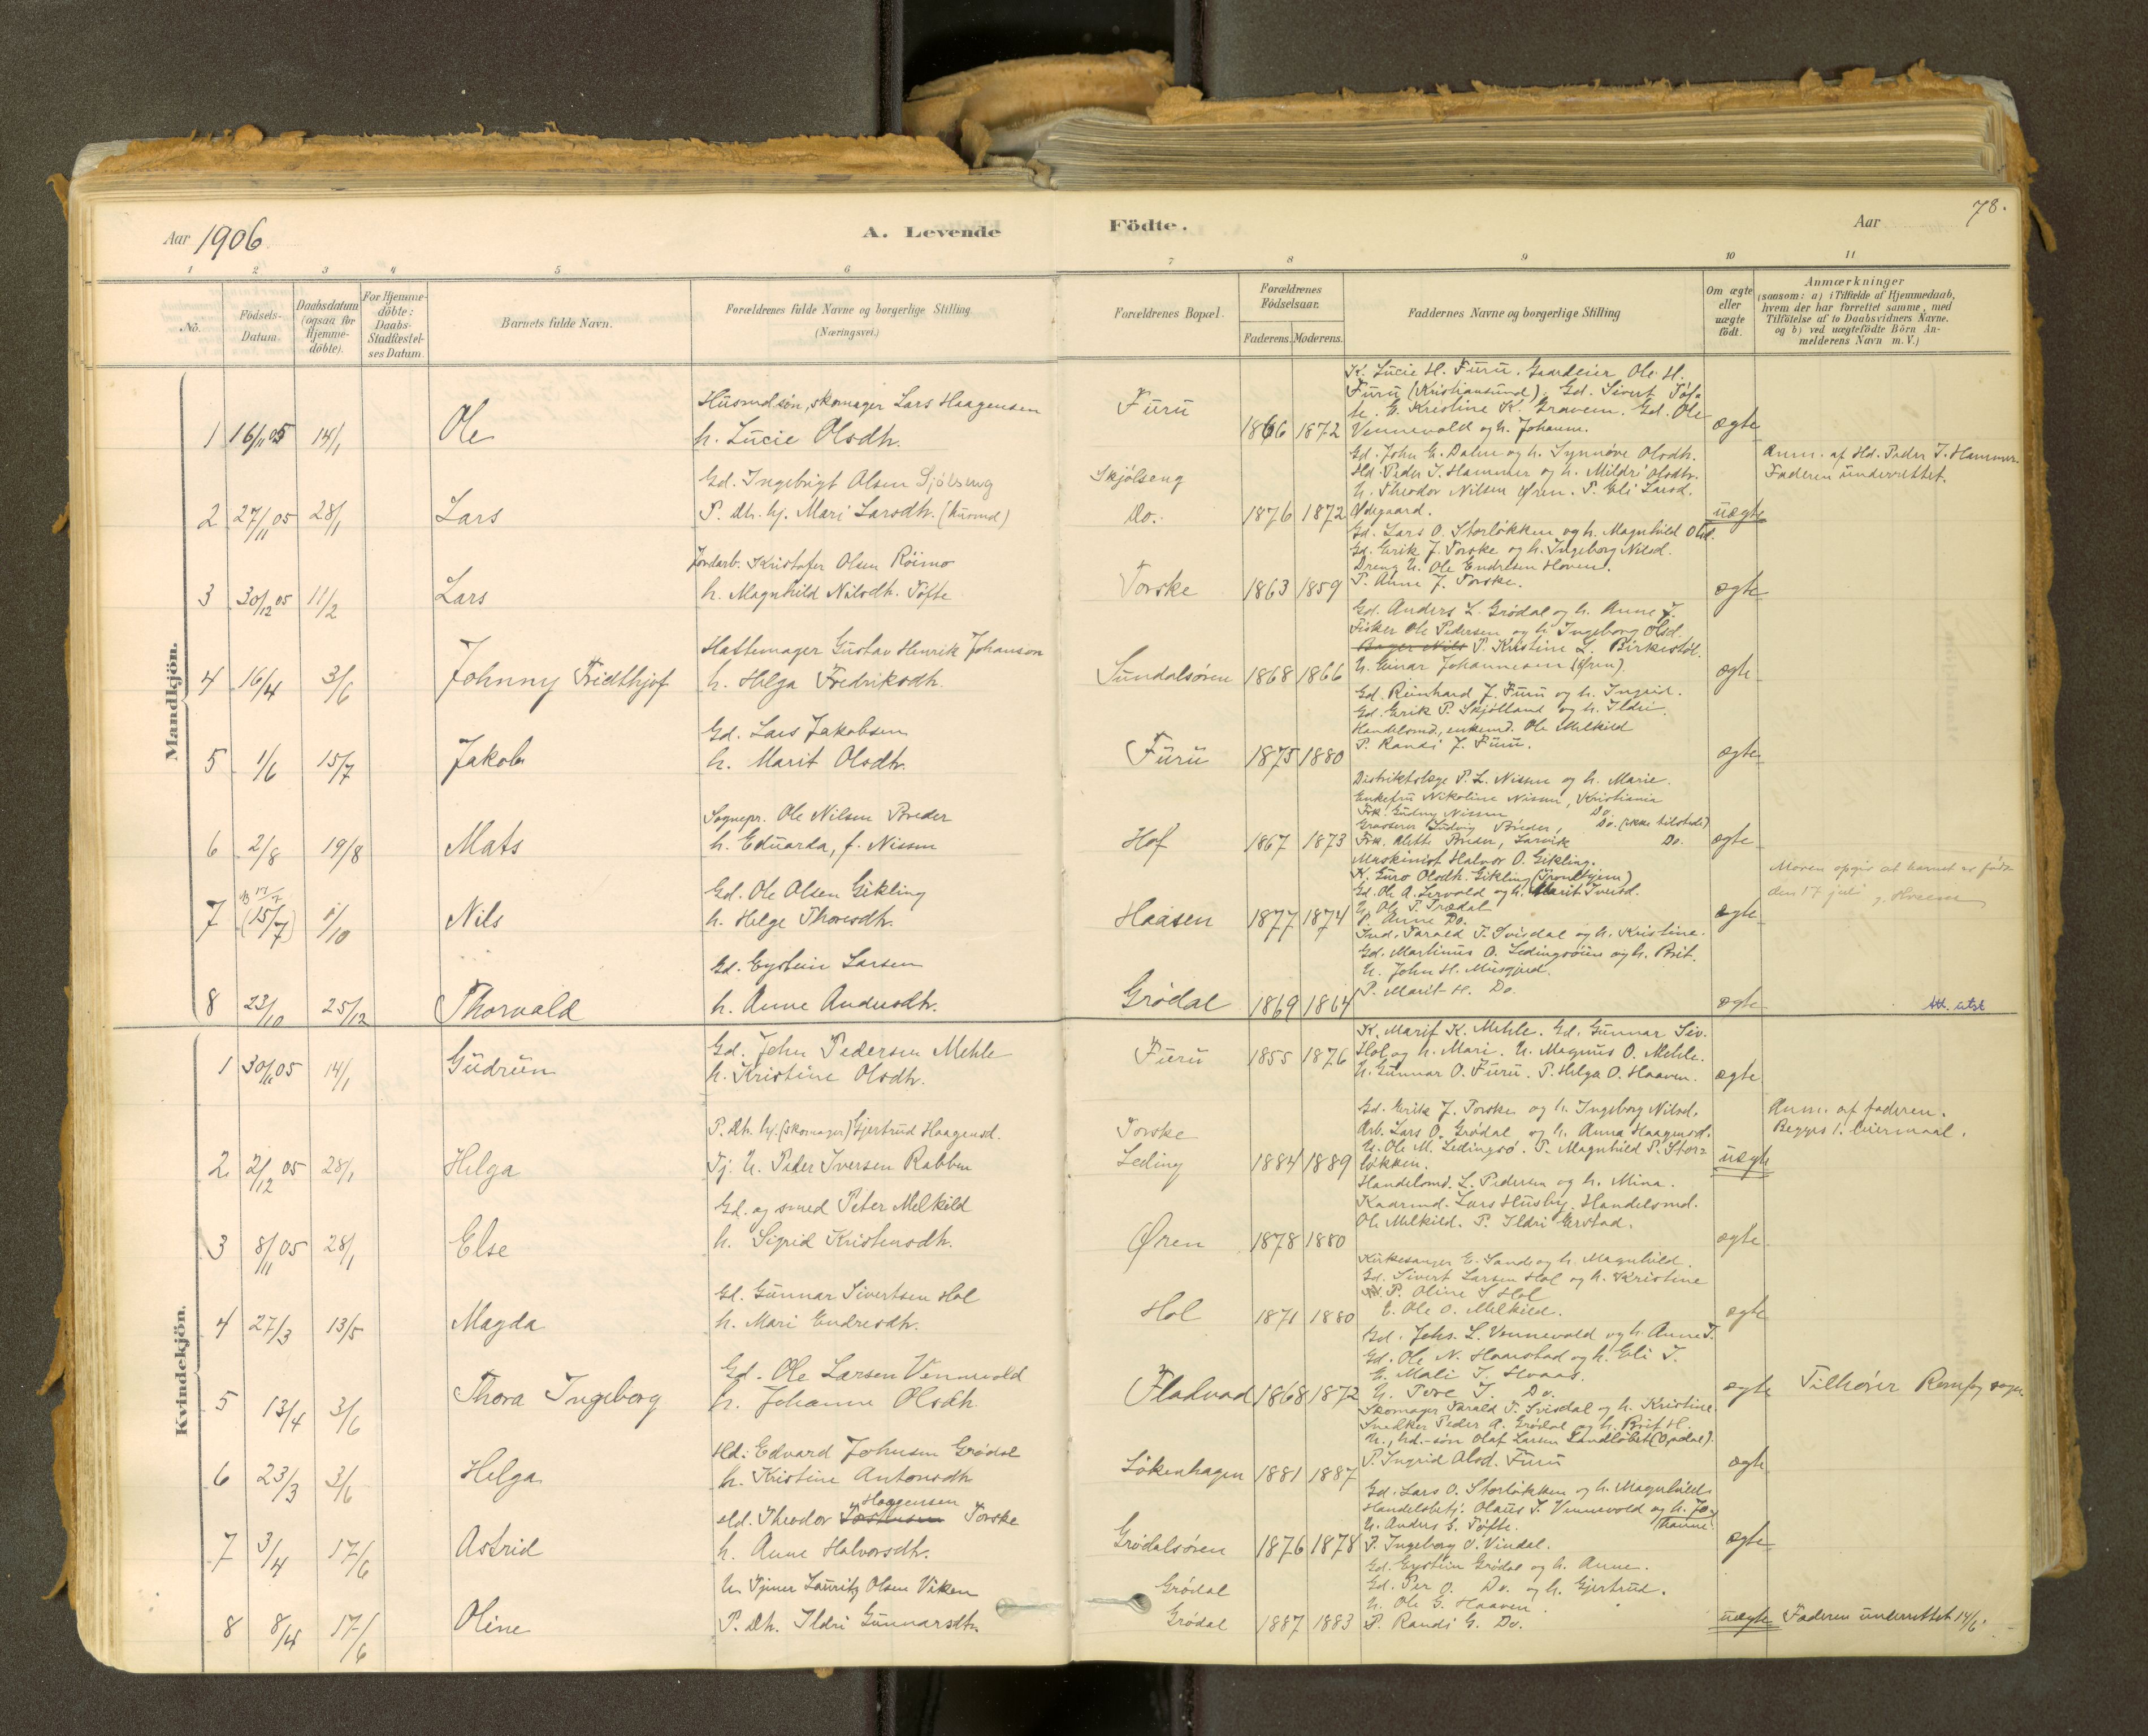 78.
Aar 1906
A. Levende
Födte.
Aar
1 2 3 4 5 6 7 8 9 10 11
No.
Födsels-Datum.
Daabsdatum (ogsaa for Hjemme-döbte).
For Hjemme-döbte: Daabs-Stadfæstel-ses Datum.
Barnets fulde Navn.
Forældrenes fulde Navne og borgerlige Stilling
(Næringsvei.)
Forældrenes Bopæl.
Forældrenes Födselsaar.
Faderens. Moderens.
Faddernes Navne og borgerlige Stilling
Om ægte eller uægte födt.
Anmærkninger
(saasom: a) i Tilfælde af Hjemmedaab,
hvem der har forrettet samme, med
Tilföielse af to Daabsvidners Navne.
og b) ved uægtefödte Börn An-
melderens Navn m. V.)
Mandkjön.
1 16/11 05 14/1 Ole
Husmdsön, skomager Lars Haagensen
h. Lucie Olsdtr.
Furu
1866 1872
K. Lucie H. Furu. Gaardeier Ole H.
Furu (Kristiansund). Gd. Sivert Töf-
te. E. Kristine K. Gravem. Gd. Ole
Vennevold og h. Johanne.
ægte
2 27/11 05 28/1 Lars
Gd. Ingebrigt Olsen Sjölseng
P. Dtr. hj. Mari Larsdtr. (husmd)
Skjölseng
Do.
1876 1872
Gd. John E. Dalen og h. Synnöve Olsdtr.
Hd. Peder J. Hammer og h. Mildri Olsdtr.
U. Theodor Nilsen Øren. P. Eli Larsd.
Ødegaard.
uægte
Anm. af Hd. Peder J. Hammer.
Faderen underrettet.
3 30/12 05 11/2 Lars
Jordarb. Kristofer Olsen Röimo
h. Magnhild Nilsdtr. Töfte
Torske
1863 1859
Gd. Lars O. Storløkken og h. Magnhild Olsd.
Gd. Erik J. Torske og h. Ingeborg Nilsd.
Dreng U. Ole Endresen Hoven.
P. Anne J. Torske.
ægte
4 16/4 3/6 Johnny Fridthjof
Hattemager Gustav Henrik Johanson
h. Helga Fredriksdtr.
Sundalsøren
1868 1866
Gd. Anders L. Grödal og h. Anne J.
Fisker Ole Pedersen og h. Ingeborg Olsd.
Bager Nils P. Kristine L. Birkestöl.
U. Einar Johannesen (Øren)
ægte
5 1/6 15/7 Jakob
Gd. Lars Jakobsen
h. Marit Olsdtr.
Furu
1875 1880
Gd. Reinhard J. Furu og h. Ingrid.
Gd. Erik P. Skjölland og h. Ildri.
Handelsmd., enkemd. Ole Melkild
P. Randi J. Furu.
ægte
6 2/8 19/8 Mats
Sognepr. Ole Nilsen Breder
h. Eduarda, f. Nissen
Hof
1867 1873
Distriktslæge P. L. Nissen og h. Marie.
Enkefru Nikoline Nissen, Kristiania
Frk. Gudny Nissen Do.
Grosserer Ludvig Breder, Do. (ikke tilstede)
Frk. Alette Breder, Larvik Do.
ægte
7 17/7 (15/7) 1/10 Nils
Gd. Ole Olsen Gikling
h. Helge Thoresdtr.
Haasen
1877 1874
Maskinist Halvor O. Gikling.
K. Guro Olsdtr. Gikling (Trondhjem)
Gd. Ole A. Lervold og h. Marit Iversd.
U. Ole T. Trædal
P. Anne Do.
ægte
Moren opgir at barnet er født
den 17 juli
8 23/10 25/12 Thorvald
Gd. Eystein Larsen
h. Anne Andersdtr.
Grödal
1869 1864
Ind. Tarald T. Svisdal og h. Kristine.
Gd. Martinus O. Ledingsöien og h. Brit.
U. John H. Musgjerd.
P. Marit H. Do.
ægte
Att. utst
Kvindekjön.
1 30/11 05 14/1 Gudrun
Gd. John Pedersen Mehle
h. Kristine Olsdtr.
Furu
1855 1876
K. Marit K. Mehle. Gd. Gunnar Siv.
Hol og h. Mari. U. Magnus O. Mehle.
U. Gunnar O. Furu. P. Helga O. Haaven.
ægte
2 2/12 05 28/1 Helga
P. Dtr. hj. (skomager) Gjertrud Haagensd.
Tj. U. Peder Iversen Rabben
Torske
Leding
1884 1889
Gd. Erik J. Torske og h. Ingeborg Nilsd.
Arb. Lars O. Grödal og h. Anna Haagensd.
U. Ole M. Ledingsö. P. Magnhild P. Stor-
løkken.
uægte
Anm. af faderen.
Begges 1. leiermaal.
3 8/11 05 28/1 Else
Gd. og smed Peter Melkild
h. Sigrid Kristensdtr.
Øren
1878 1880
Handelsmd. L. Pedersen og h. Mina.
Kaarmd. Lars Husby. Handelsmd.
Ole Melkild. P. Ildri Gerstad.
ægte
4 27/3 13/5 Magda
Gd. Gunnar Sivertsen Hol
h. Mari Endresdtr.
Hol
1871 1880
Kirkesanger E. Sande og h. Magnhild.
Gd. Sivert Larsen Hol og h. Kristine
P. Oline S Hol
E. Ole O. Melkild.
ægte
5 13/4 3/6 Thora Ingeborg
Gd. Ole Larsen Vennevold
h. Johanne Olsdtr.
Fladvad
1868 1872
Gd. Johs. L. Vennevold og h. Anne T.
Gd. Ole N. Hoaastad og h. Eli T.
E. Mali T. Hvaas.
U. Tore T. Do.
ægte
Tilhörer Romfog sogn
6 23/3 3/6 Helga
Hd. Edvard Johnsen Grödal
h. Kristine Antonsdtr
Løkenhagen
1881 1887
Skomager Tarald T. Svisdal og h. Kristine
Snedker Peder A. Grödal og h. Brit H.
U., hd.-søn Olaf Larsen Landløbet (Opdal).
P. Ingrid Olsd. Furu
ægte
7 3/4 17/6 Astrid
Haagensen
Hd. Theodor Torstensen Torske
h. Anne Halvorsdtr.
Grödalsøren
1876 1878
Gd. Lars O. Storløkken og h. Magnhild
Handelsbetj. Olaus T. Vennevold og h. Jo-
hanne.
U. Anders G. Töfte.
P. Ingeborg O. Vindal.
ægte
8 8/4 17/6 Oline
U. Tjener Lauritz Olsen Viken
P. Dtr. Ildri Gunnarsdtr.
Grödal
Grödal
1887 1883
Gd. Eystein Grödal og h. Anne.
Gd. Per O. Do. og h. Gjertrud.
U. Ole G. Haaven.
P. Randi G. Do.
uægte
Faderen underrettet 14/6.